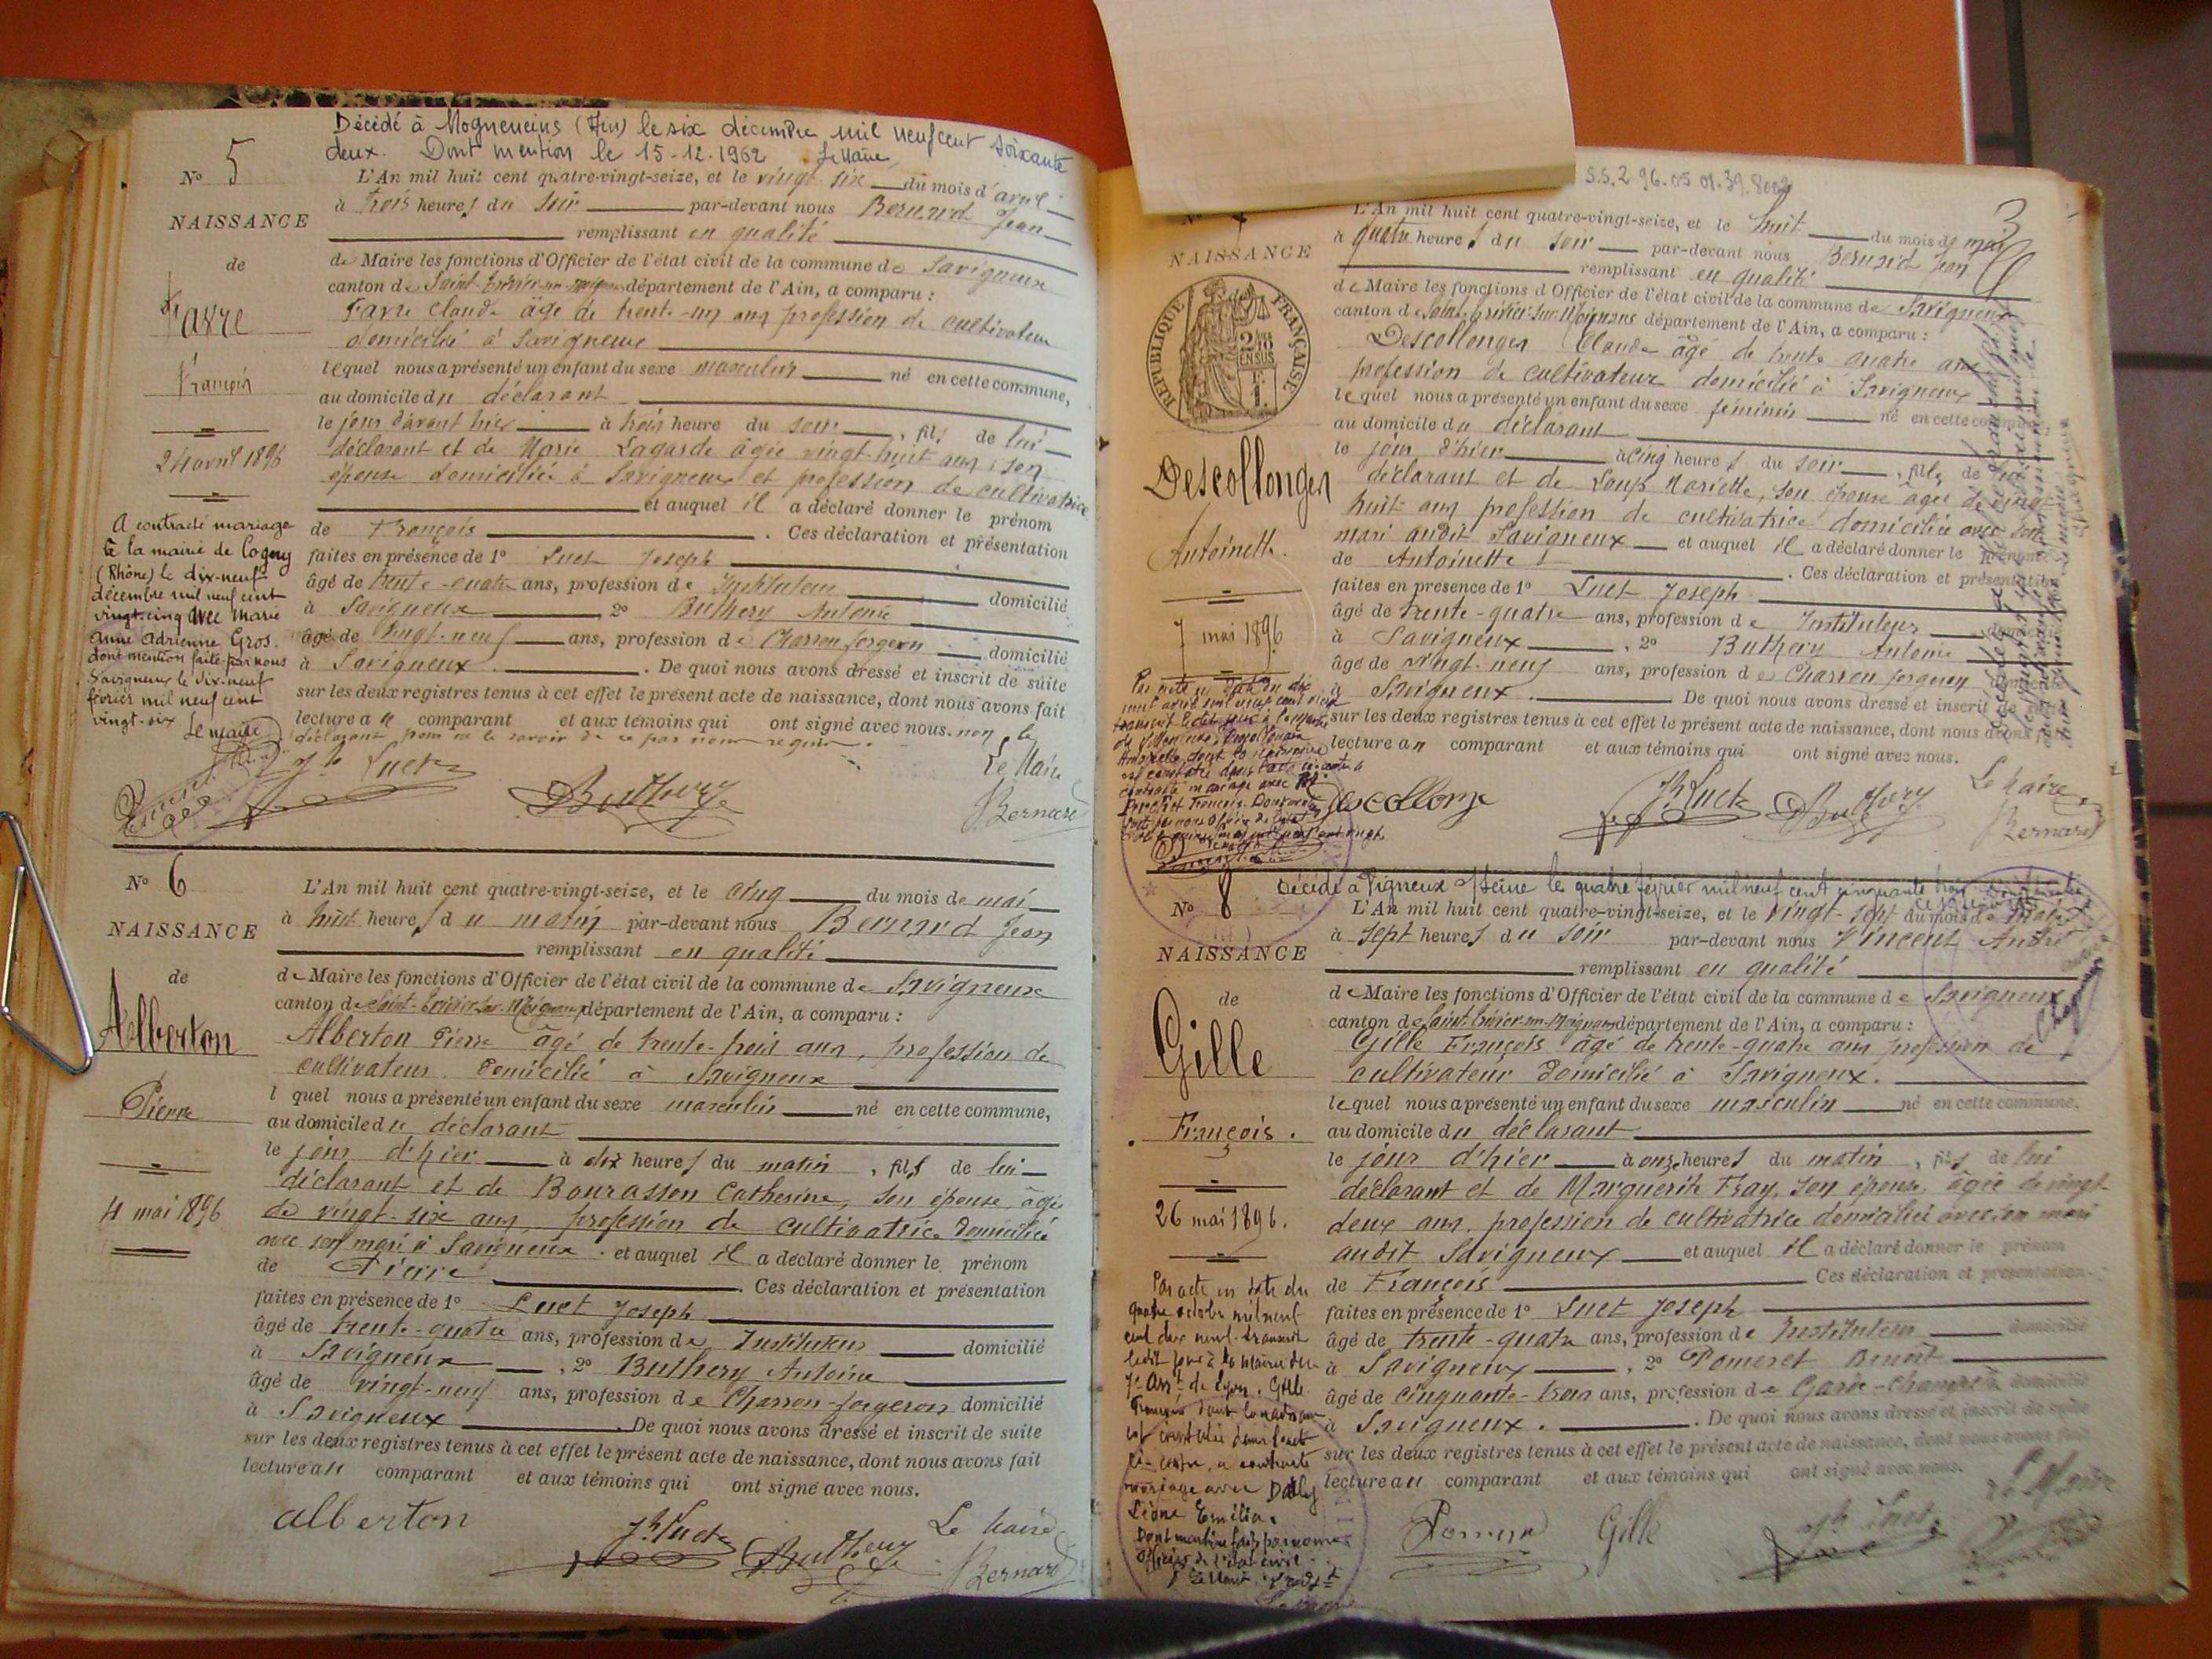 Décédé à Mogneneins (Ain) le six décembre mil neuf cent soixante
deux. Dont mention le 15-12-1962 Le Maire
N° 5
NAISSANCE
de
Favre
François
24 avril 1896
A contracté mariage
à la mairie de Cogny
(Rhône) le dix-neuf
décembre mil neuf cent
vingt-cinq avec Marie
Anne Adrienne Gros.
dont mention faite par nous
Savigneux le dix-neuf
février mil neuf cent
vingt-six
Le maire
L'An mil huit cent quatre-vingt-seize, et le vingt-six du mois d'avril
à trois heures du soir par-devant nous Bernard Jean
remplissant en qualité
de Maire les fonctions d'Officier de l'état civil de la commune de Savigneux
canton de Saint-Trivier-sur-Moignans département de l'Ain, a comparu :
Favre Claude âgé de trente-un ans profession de cultivateur
domicilié à Savigneux
lequel nous a présenté un enfant du sexe masculin né en cette commune,
au domicile du déclarant
le jour d'avant hier à trois heure du soir, fils de lui
déclarant et de Marie Lagarde âgée vingt-huit ans, son
épouse domiciliée à Savigneux et profession de cultivatrice
et auquel il a déclaré donner le prénom
de François. Ces déclaration et présentation
faites en présence de 1° Luet Joseph
âgé de trente-quatre ans, profession de Instituteur domicilié
à Savigneux 2° Buthery Antoine
âgé de vingt-neuf ans, profession de Charron forgeron domicilié
à Savigneux. De quoi nous avons dressé et inscrit de suite
sur les deux registres tenus à cet effet le présent acte de naissance, dont nous avons fait
lecture au comparant et aux témoins qui ont signé avec nous. non le
déclarant pour ne le savoir de ce par nous requis.
Jh Luet Buthery Le Maire
Bernard
N° 6
NAISSANCE
de
Alberton
Pierre
4 mai 1896
L'An mil huit cent quatre-vingt-seize, et le cinq du mois de mai
à huit heures du matin par-devant nous Bernard Jean
remplissant en qualité
de Maire les fonctions d'Officier de l'état civil de la commune de Savigneux
canton de Saint-Trivier-sur-Moignans département de l'Ain, a comparu :
Alberton Pierre âgé de trente-trois ans, profession de
cultivateur domicilié à Savigneux
l quel nous a présenté un enfant du sexe masculin né en cette commune,
au domicile du déclarant
le jour d'hier à dix heures du matin, fils de lui
déclarant et de Bourasson Catherine, son épouse, âgée
de vingt-six ans, profession de cultivatrice domiciliée
avec son mari à Savigneux. et auquel il a déclaré donner le prénom
de Pierre. Ces déclaration et présentation
faites en présence de 1° Luet Joseph
âgé de trente-quatre ans, profession de Instituteur domicilié
à Savigneux, 2° Buthery Antoine
âgé de vingt-neuf ans, profession de Charron-forgeron domicilié
à Savigneux. De quoi nous avons dressé et inscrit de suite
sur les deux registres tenus à cet effet le présent acte de naissance, dont nous avons fait
lecture au comparant et aux témoins qui ont signé avec nous.
alberton Jh Luet Buthery Le Maire
Bernard
S.S.2 96.05 01.39.8002
3
N°
NAISSANCE
REPUBLIQUE FRANÇAISE
2/10
EN SUS
Descollonges
Antoinette.
7 mai 1896
L'An mil huit cent quatre-vingt-seize, et le huit du mois de mai
à quatre heures du soir par-devant nous Bernard Jean
remplissant en qualité
de Maire les fonctions d'Officier de l'état civil de la commune de Savigneux
canton de Saint-Trivier-sur-Moignans département de l'Ain, a comparu :
Descollonges Claude âgé de trente quatre ans
profession de cultivateur domicilié à Savigneux
lequel nous a présenté un enfant du sexe féminin né en cette commune
au domicile du déclarant
le jour d'hier à cinq heures du soir, fille de
déclarant et de Loup Mariette, son épouse âgée de vingt
huit ans profession de cultivatrice domiciliée avec son
mari audit Savigneux et auquel il a déclaré donner le prénom
de Antoinette. Ces déclaration et présentation
faites en présence de 1° Luet Joseph
âgé de trente-quatre ans, profession de Instituteur
à Savigneux, 2° Buthery Antoine
âgé de vingt-neuf ans, profession de Charron forgeron
à Savigneux. De quoi nous avons dressé et inscrit de
sur les deux registres tenus à cet effet le présent acte de naissance, dont nous avons
lecture au comparant et aux témoins qui ont signé avec nous.
Descollonge Jh Luet Buthery Le Maire
Bernard
Décédé à Vigneux s/Seine le quatre février mil neuf cent cinquante trois
N° 8
NAISSANCE
de
Gille
François.
26 mai 1896.
Par acte en date du
quatre octobre mil neuf
cent dix neuf transcrit
ledit jour à la mairie du
7e Arrt de Lyon, Gille
François dont la naissance
est constatée dans l'acte
ci-contre, a contracté
mariage avec Dolly
Léone Emélia.
Dont mention faite par nous
officier de l'état civil
L'An mil huit cent quatre-vingt-seize, et le vingt-sept du mois de mai
à sept heures du soir par-devant nous Vincent André
remplissant en qualité
de Maire les fonctions d'Officier de l'état civil de la commune de Savigneux
canton de Saint-Trivier-sur-Moignans département de l'Ain, a comparu :
Gille François âgé de trente-quatre ans profession de
cultivateur domicilié à Savigneux.
lequel nous a présenté un enfant du sexe masculin né en cette commune,
au domicile du déclarant
le jour d'hier à onze heures du matin, fils de lui
déclarant et de Marguerite Fray, son épouse, âgée de vingt-
deux ans, profession de cultivatrice domiciliée avec son mari
audit Savigneux et auquel il a déclaré donner le prénom
de François Ces déclaration et présentation
faites en présence de 1° Luet Joseph
âgé de trente-quatre ans, profession de Instituteur domicilié
à Savigneux, 2° Pomeret Benoît
âgé de cinquante-trois ans, profession de Garde-Champêtre domicilié
à Savigneux. De quoi nous avons dressé et inscrit de suite
sur les deux registres tenus à cet effet le présent acte de naissance, dont nous avons fait
lecture au comparant et aux témoins qui ont signé avec nous.
Gille Jh Luet Le Maire